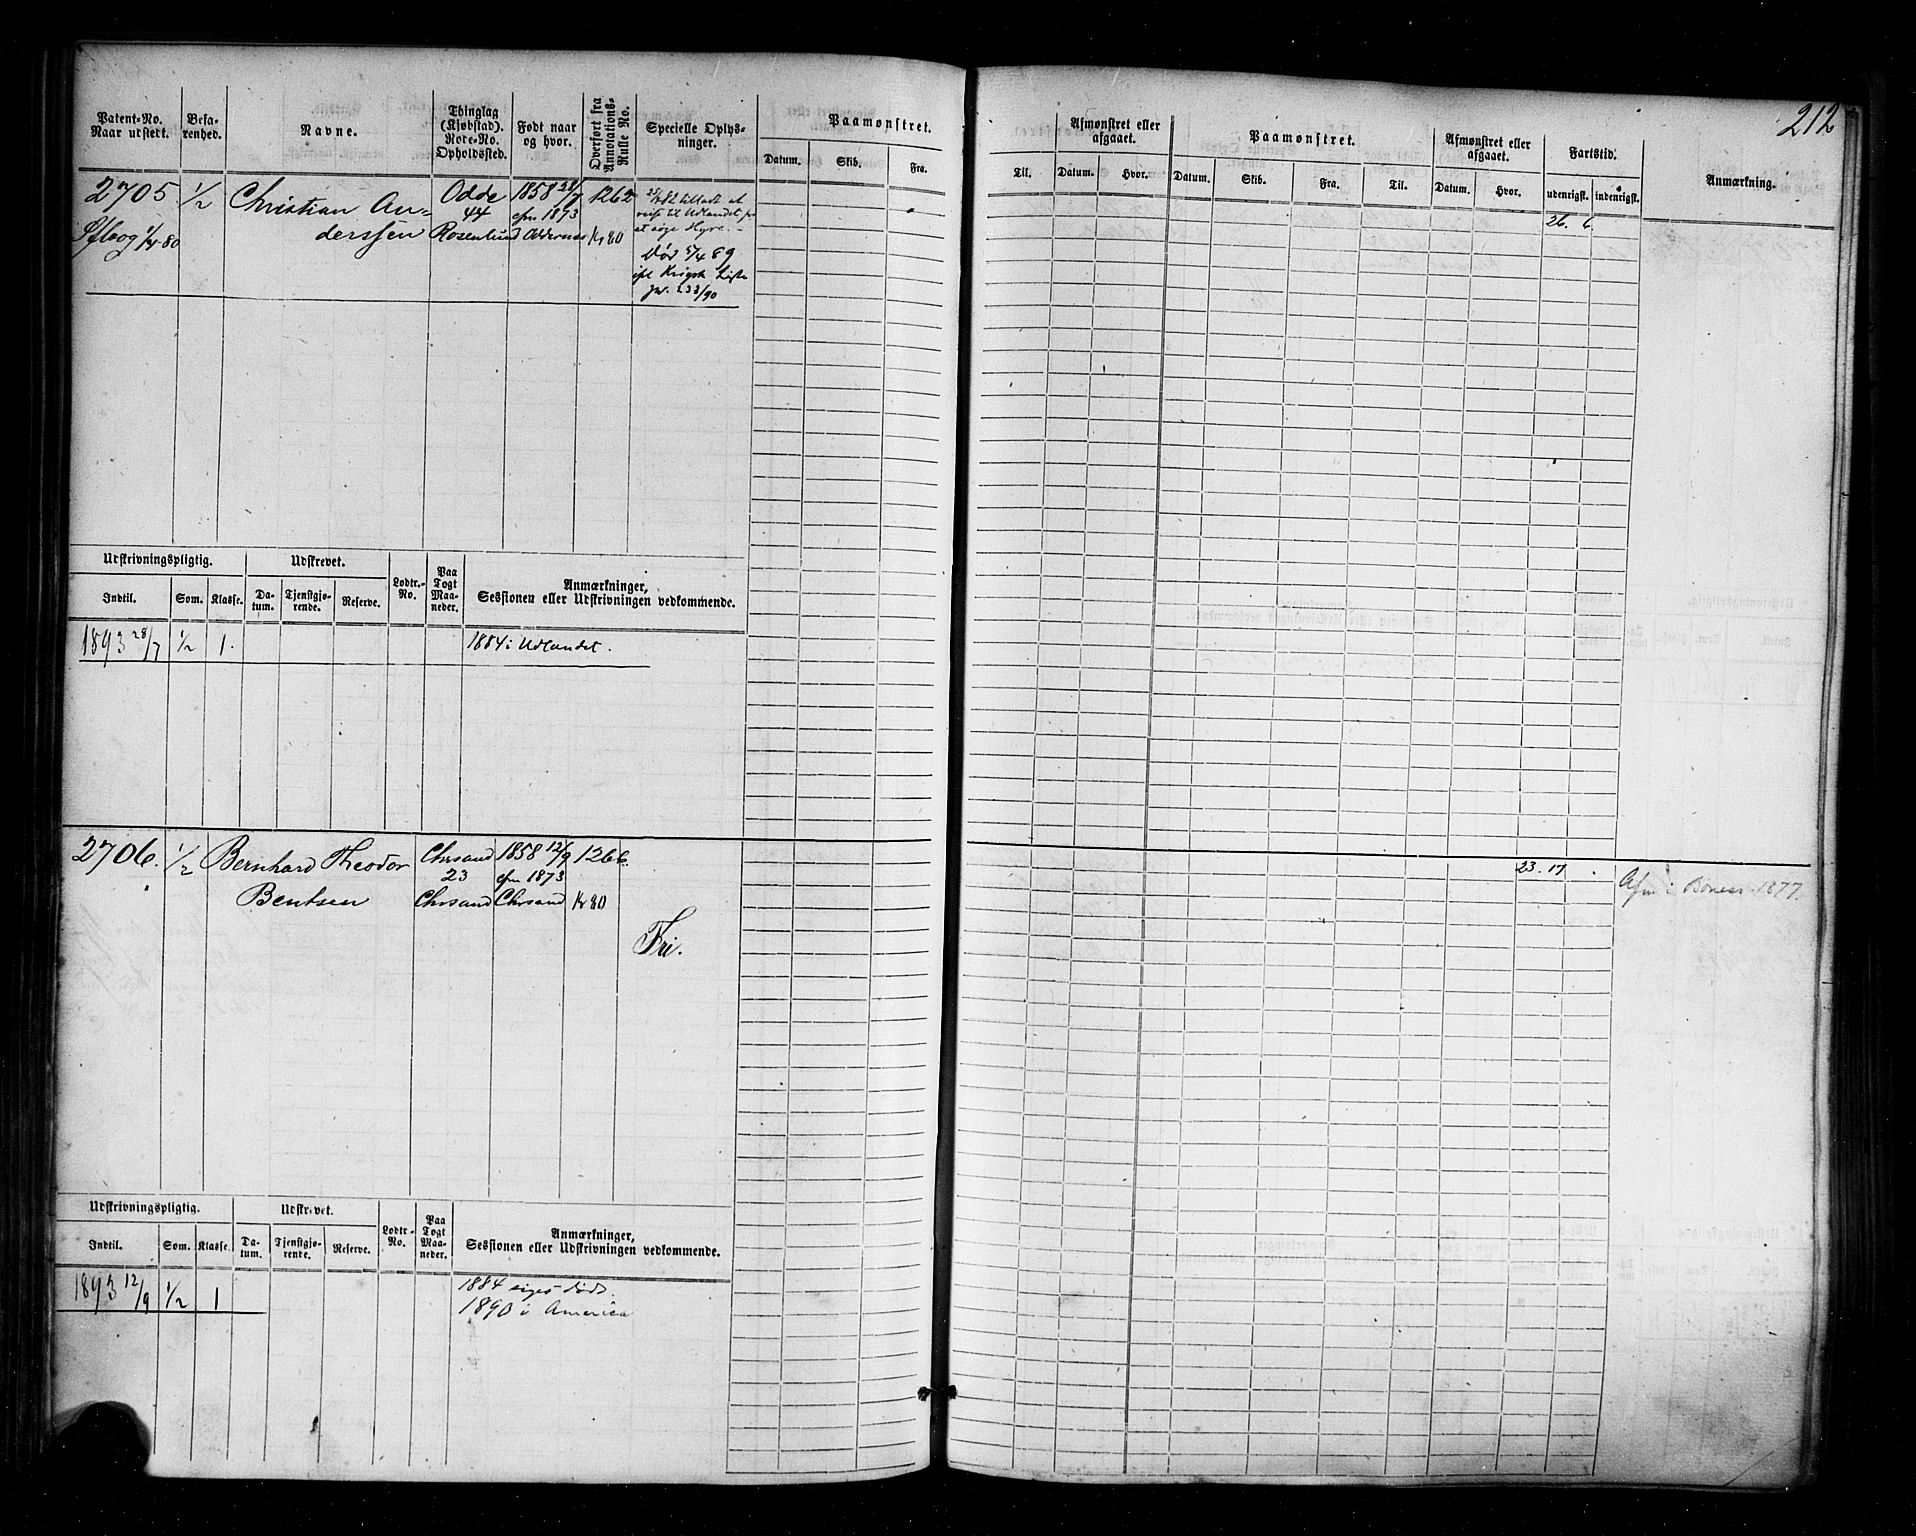 212
Patent-No. Naar utstedt.
Befarenhed.
Navne.
Thinglag (Kjøbstad). Rote-No. Opholdssted.
Født naar og hvor.
Overført fra Annotations-Rulle No.
Specielle Oplysninger.
Paamønstret.
Datum. Skib. Fra.
Til.
Afmønstret eller afgaaet.
Datum. Hvor.
Paamønstret.
Datum. Skib. Fra. Til.
Afmønstret eller afgaaet.
Datum. Hvor.
Fartstid.
udenrigst. indenrigst.
Anmærkning.
2705 1/2 Christian An= Odde 1858 28/7 1262
44 1873
Søfbog 1/4-80 derssen Rosenlund Oddernes Kr 80
82 tilladt at
reise til Udlandet for
at søge Hyre.
Død 5/4 89
ifl Krigsk Liste
jw. 233/90
26. 6.
Udskrivningspligtig.
Indtil. Søm. Klasse.
Udskrevet.
Datum. Tjenstgjørende. Reserve.
Lodtr.-No.
Paa Togt Maaneder.
Anmærkninger,
Sessionen eller Udskrivningen vedkommende.
1893 28/7 1/2 1. 1884 i Udlandet.
2706. 1/2 Bernhard Theodor Chrsand 1858 12/9 1266.
23 1873
Bentsen Chrsand Chrsand Kr 80
Fri.
23. 17
Afm i 1877.
Udskrivningspligtig.
Indtil. Søm. Klasse.
Udskrevet.
Datum. Tjenstgjørende. Reserve.
Lodtr.-No.
Paa Togt Maaneder.
Anmærkninger,
Sessionen eller Udskrivningen vedkommende.
1893 12/9 1/2 1 1884 siges død.
1890 i America